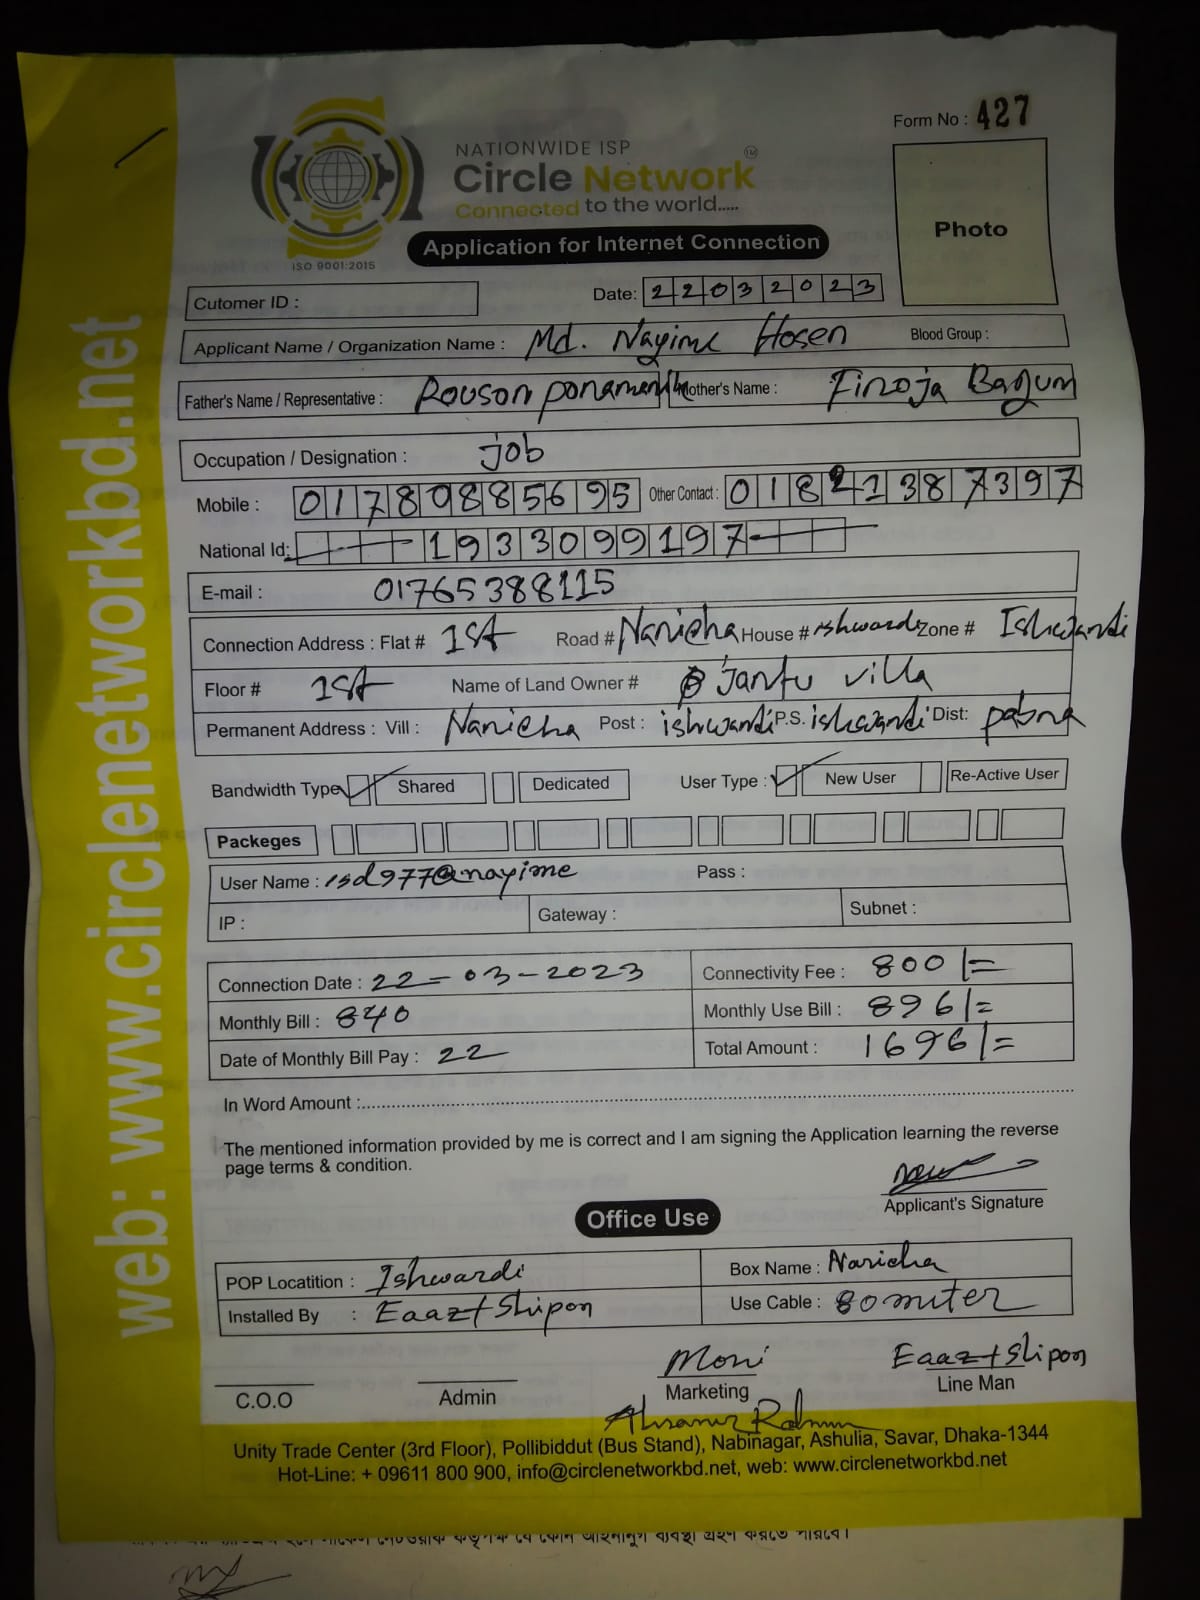 Form No : 427
NATIONWIDE ISP
Circle Network TM
Connected to the world.....
ISO 9001:2015
Application for Internet Connection
Photo
Cutomer ID :
Date: 22032023
Applicant Name / Organization Name : Md. Nayime Hosen Blood Group :
Father's Name / Representative : Rouson ponamanik Mother's Name : Firoja Bagum
Occupation / Designation : job
Mobile : 01780885695 Other Contact : 01821387397
National Id: 1933099197
E-mail : 01765388115
Connection Address : Flat # 1st Road # Naricha House # ishwardi Zone # Ishwardi
Floor # 1st Name of Land Owner # Jantu villa
Permanent Address : Vill : Naricha Post : ishwardi P.S. ishwardi Dist: pabna
Bandwidth Type Shared Dedicated User Type : New User Re-Active User
Packeges
User Name : isd977@nayime Pass :
IP : Gateway : Subnet :
Connection Date : 22-03-2023 Connectivity Fee : 800/=
Monthly Bill : 840 Monthly Use Bill : 896/=
Date of Monthly Bill Pay : 22 Total Amount : 1696/=
In Word Amount :
The mentioned information provided by me is correct and I am signing the Application learning the reverse
page terms & condition.
Applicant's Signature
Office Use
POP Locatition : Ishwardi Box Name : Naricha
Installed By : Eaaz+Shipon Use Cable : 80 miter
C.O.O Admin Moni Marketing Eaaz+Shipon Line Man
Unity Trade Center (3rd Floor), Pollibiddut (Bus Stand), Nabinagar, Ashulia, Savar, Dhaka-1344
Hot-Line: + 09611 800 900, info@circlenetworkbd.net, web: www.circlenetworkbd.net
web: www.circlenetworkbd.net